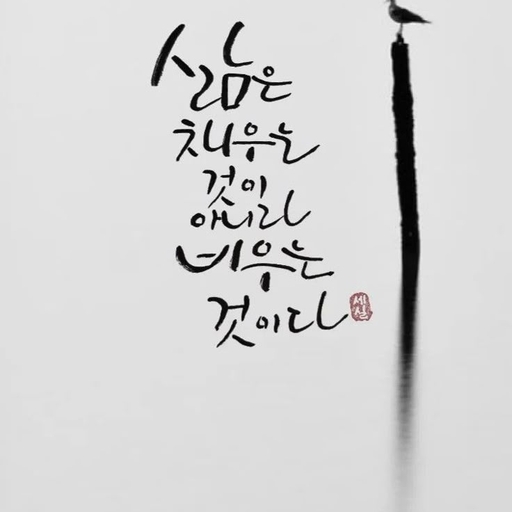 삶은
채우는
것이
아니라
비우는
것이다
세실